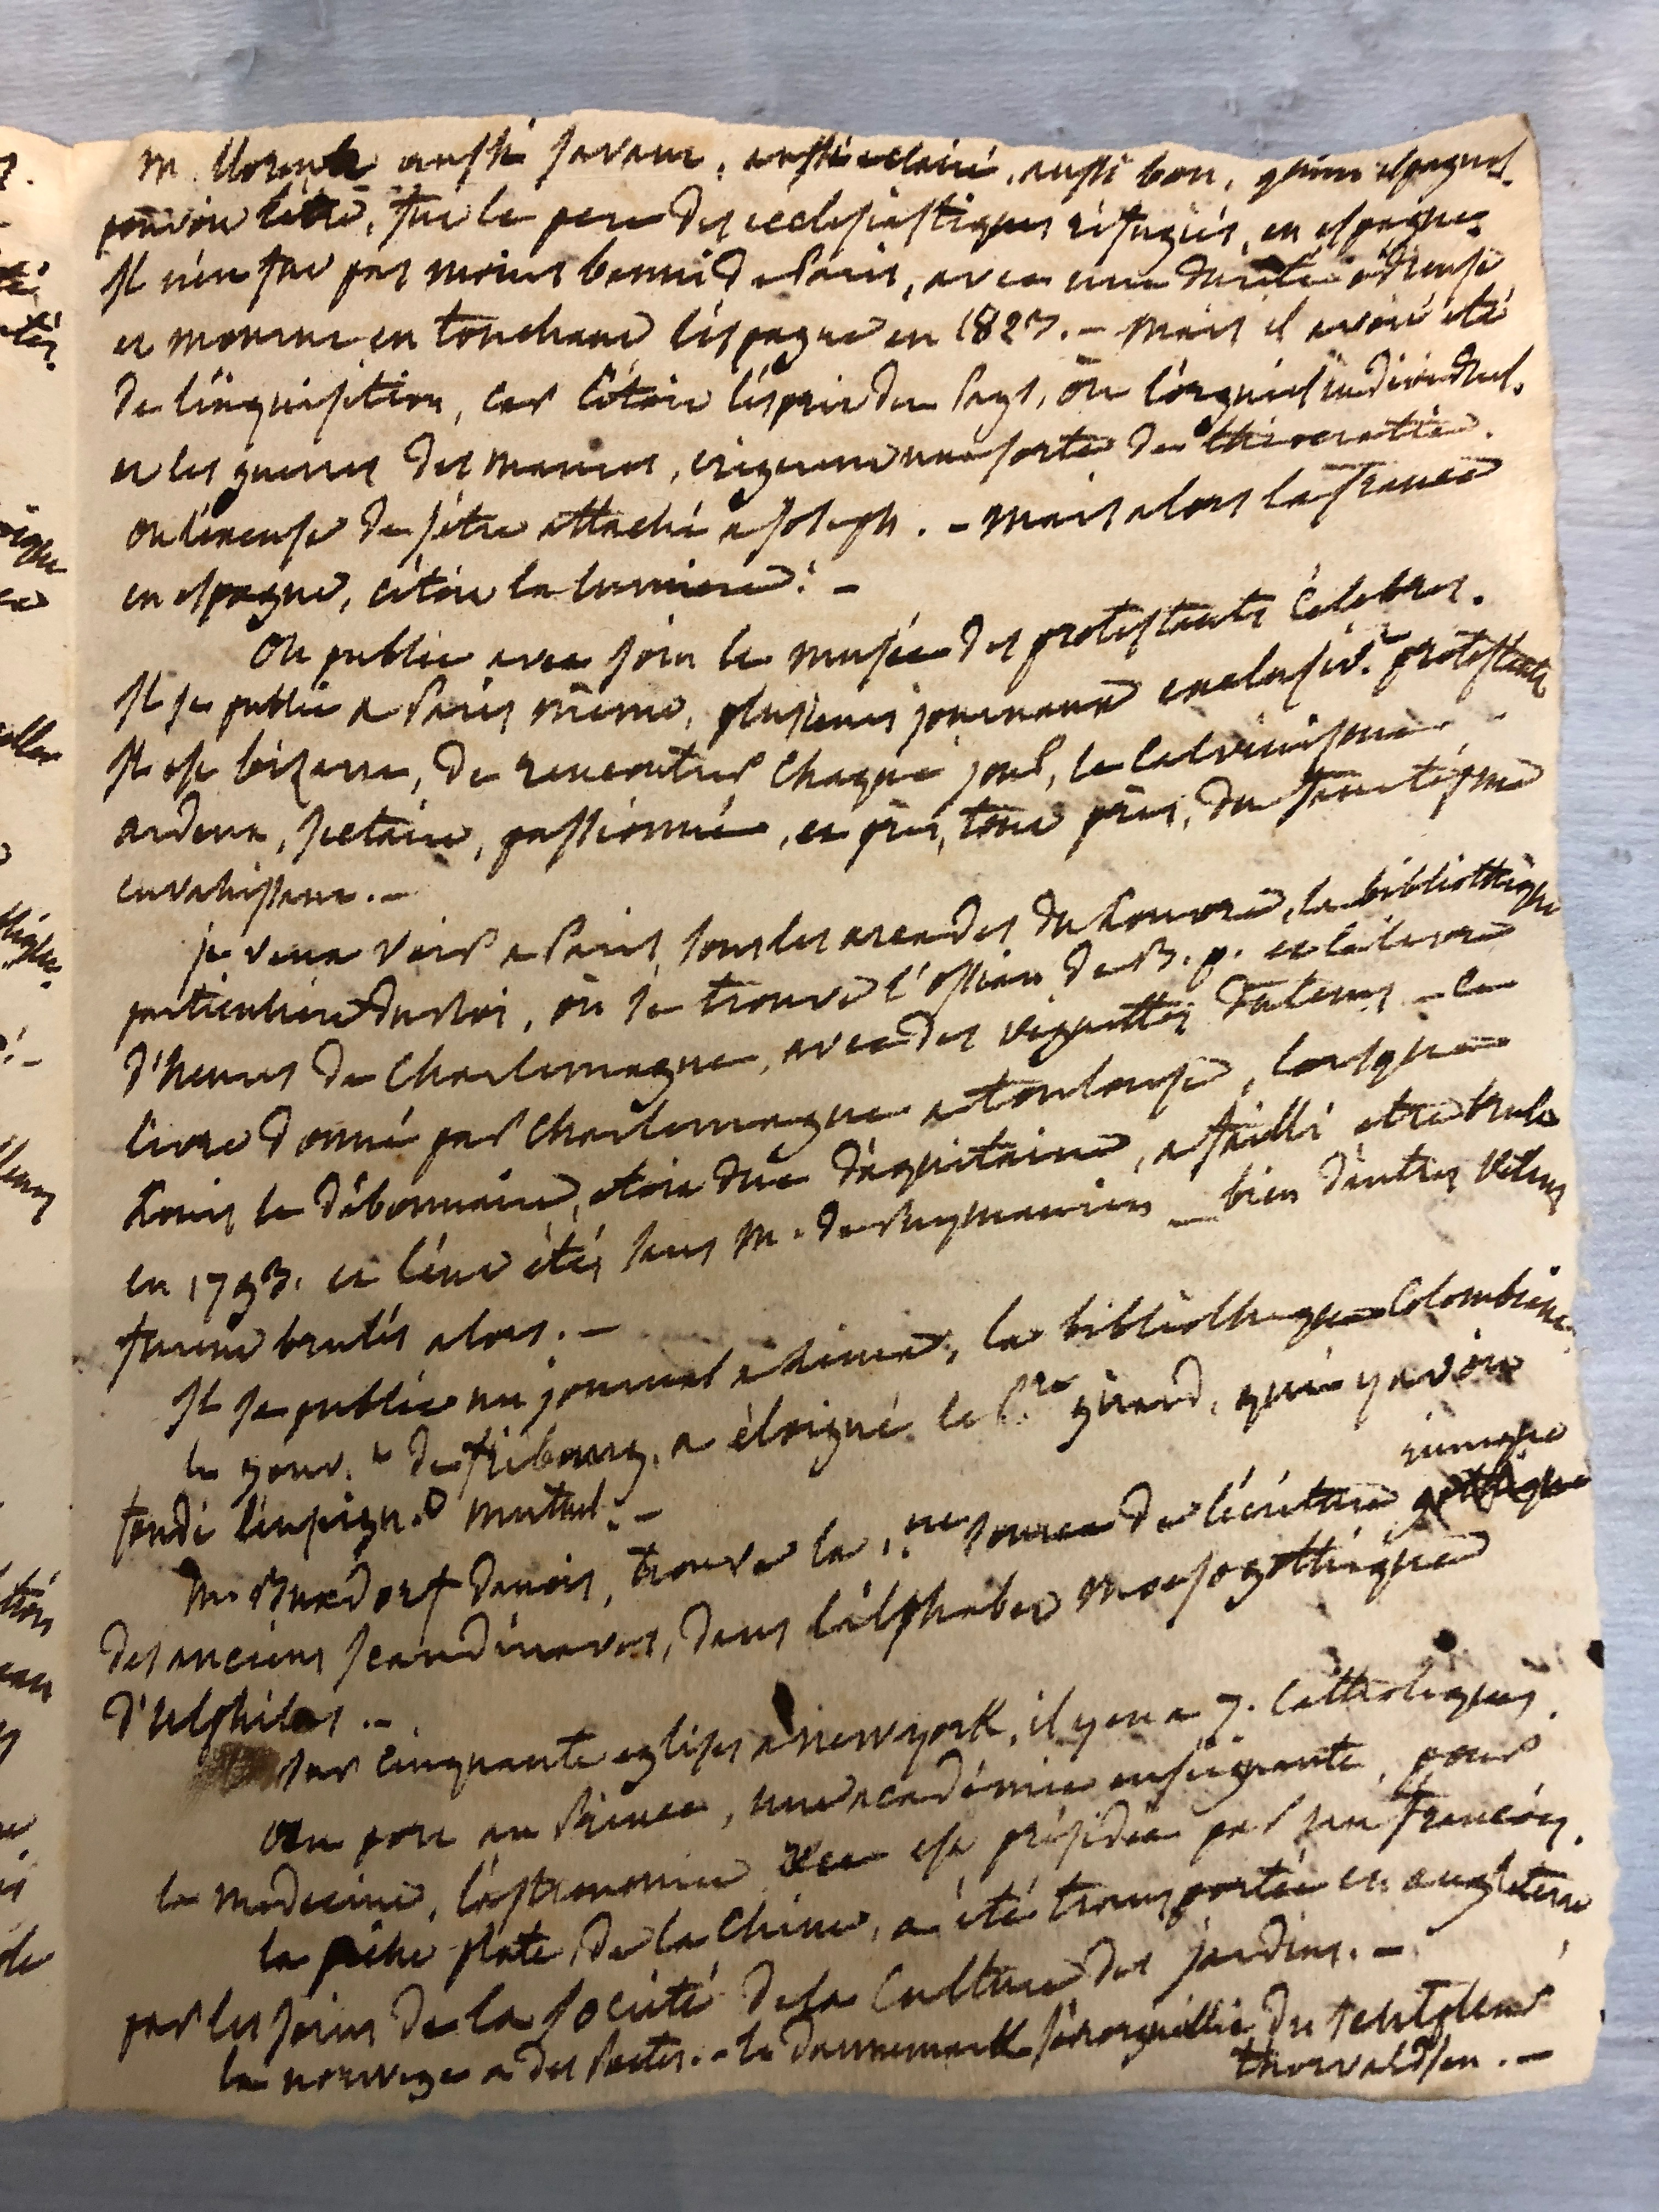 M. Llorente aussi savant, aussi eclairé, aussi bon, qu'un espagnol
pouvoit l'etre, fut le pere des ecclesiastiques réfugiés, en espagne.
Il n'en fut pas moins banni de Paris, avec une dureté odieuse
et mourut en touchant l'espagne en 1823. – Mais il avoit été
de l'inquisition, car c'étoit l'esprit du Pays, où l'orgueil individuel.
et les guerres des maures, erigerent une sorte de théocratie.
on l'accuse de s'être attaché a Joseph. – Mais alors la france
en espagne, c'étoit la lumiere. –
On publie avec soin le musée des protestants célebres.
Il se publie a Paris même, plusieurs journaux exclusiv.t protestants
Il est bizarre, de rencontrer chaque jour, le calvinisme
ardent, sectaire, passionné, et près, tout près, du
envahissant. –
je veux voir a Paris, sous les arcades du Louvre, la bibliothèque
particuliere du Roi, où se trouve l'ossian de B. p. et le livre
d'heures de Charlemagne, avec des vignettes du tems – ce
livre donné par Charlemagne a toulouse, lorsque
Louis le débonnaire, etoit duc d'aquitaine, a failli etre brulé
en 1793. et l'eut été, sans M. de Puymaurin – bien d'autres
furent brulés alors. –
Il se publie un journal a Lima, la bibliotheque Colombiene.
le gouv.t de fribourg, a éloigné le P.re girard, qui y avoit
fondé l'enseign.t mutuel. –
M. Buxdorf danois, trouve la 1.ere source de l'écriture runique
des anciens scandinaves, dans l'alphabet moesogothique
d'Ulphilas. –
sur cinquante eglises a newyork, il y en a 7. catholiques.
au port au Prince, une académie enseignante, pour
la medecine, l'astronomie est présidée par un françois.
la pêche plate de la Chine, a été transportée en angleterre
par les soins de la société de la culture des jardins. –
la norwege a des Poetes. – le dannemark s'énorgueillit du sculpteur
thorvaldsen. –